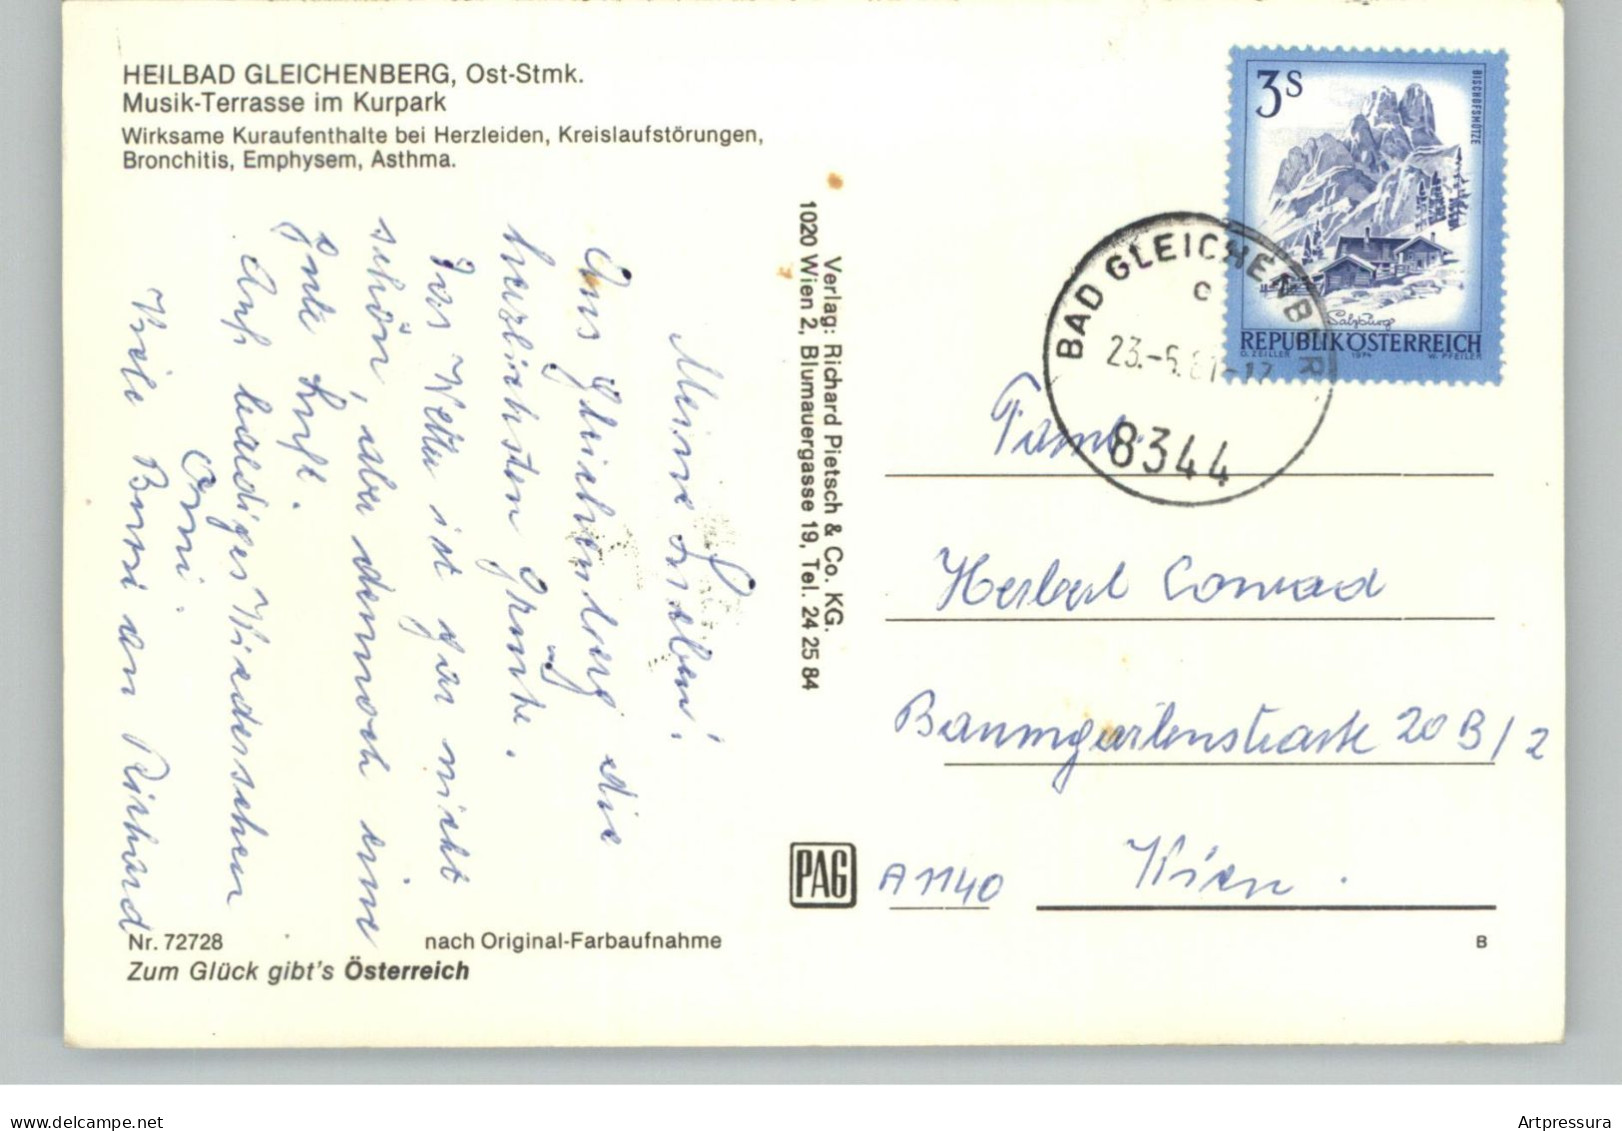 HEILBAD GLEICHENBERG, Ost-Stmk.
Musik-Terrasse im Kurpark
Wirksame Kuraufenthalte bei Herzleiden, Kreislaufstörungen,
Bronchitis, Emphysem, Asthma.
Meine Lieben!
Aus Gleichenberg die
herzlichsten Grüße.
Das Wetter ist gar nicht
schön, aber dennoch eine
gute Luft.
Auf baldiges Wiedersehen
Omi.
Viele Bussi an Richard
Verlag: Richard Pietsch & Co. KG.
1020 Wien 2, Blumauergasse 19, Tel. 24 25 84
3S
BISCHOFSMÜTZE
Salzburg
REPUBLIK ÖSTERREICH
O. ZEILLER 1974 W. PFEILER
BAD GLEICHENBER
c
23.-6.81-17
8344
Fam.
Herbert Conrad
Baumgartenstrasse 20B/2
A 1140 Wien.
PAG
Nr. 72728 nach Original-Farbaufnahme
B
Zum Glück gibt's Österreich
www.delcampe.net
Artpressura